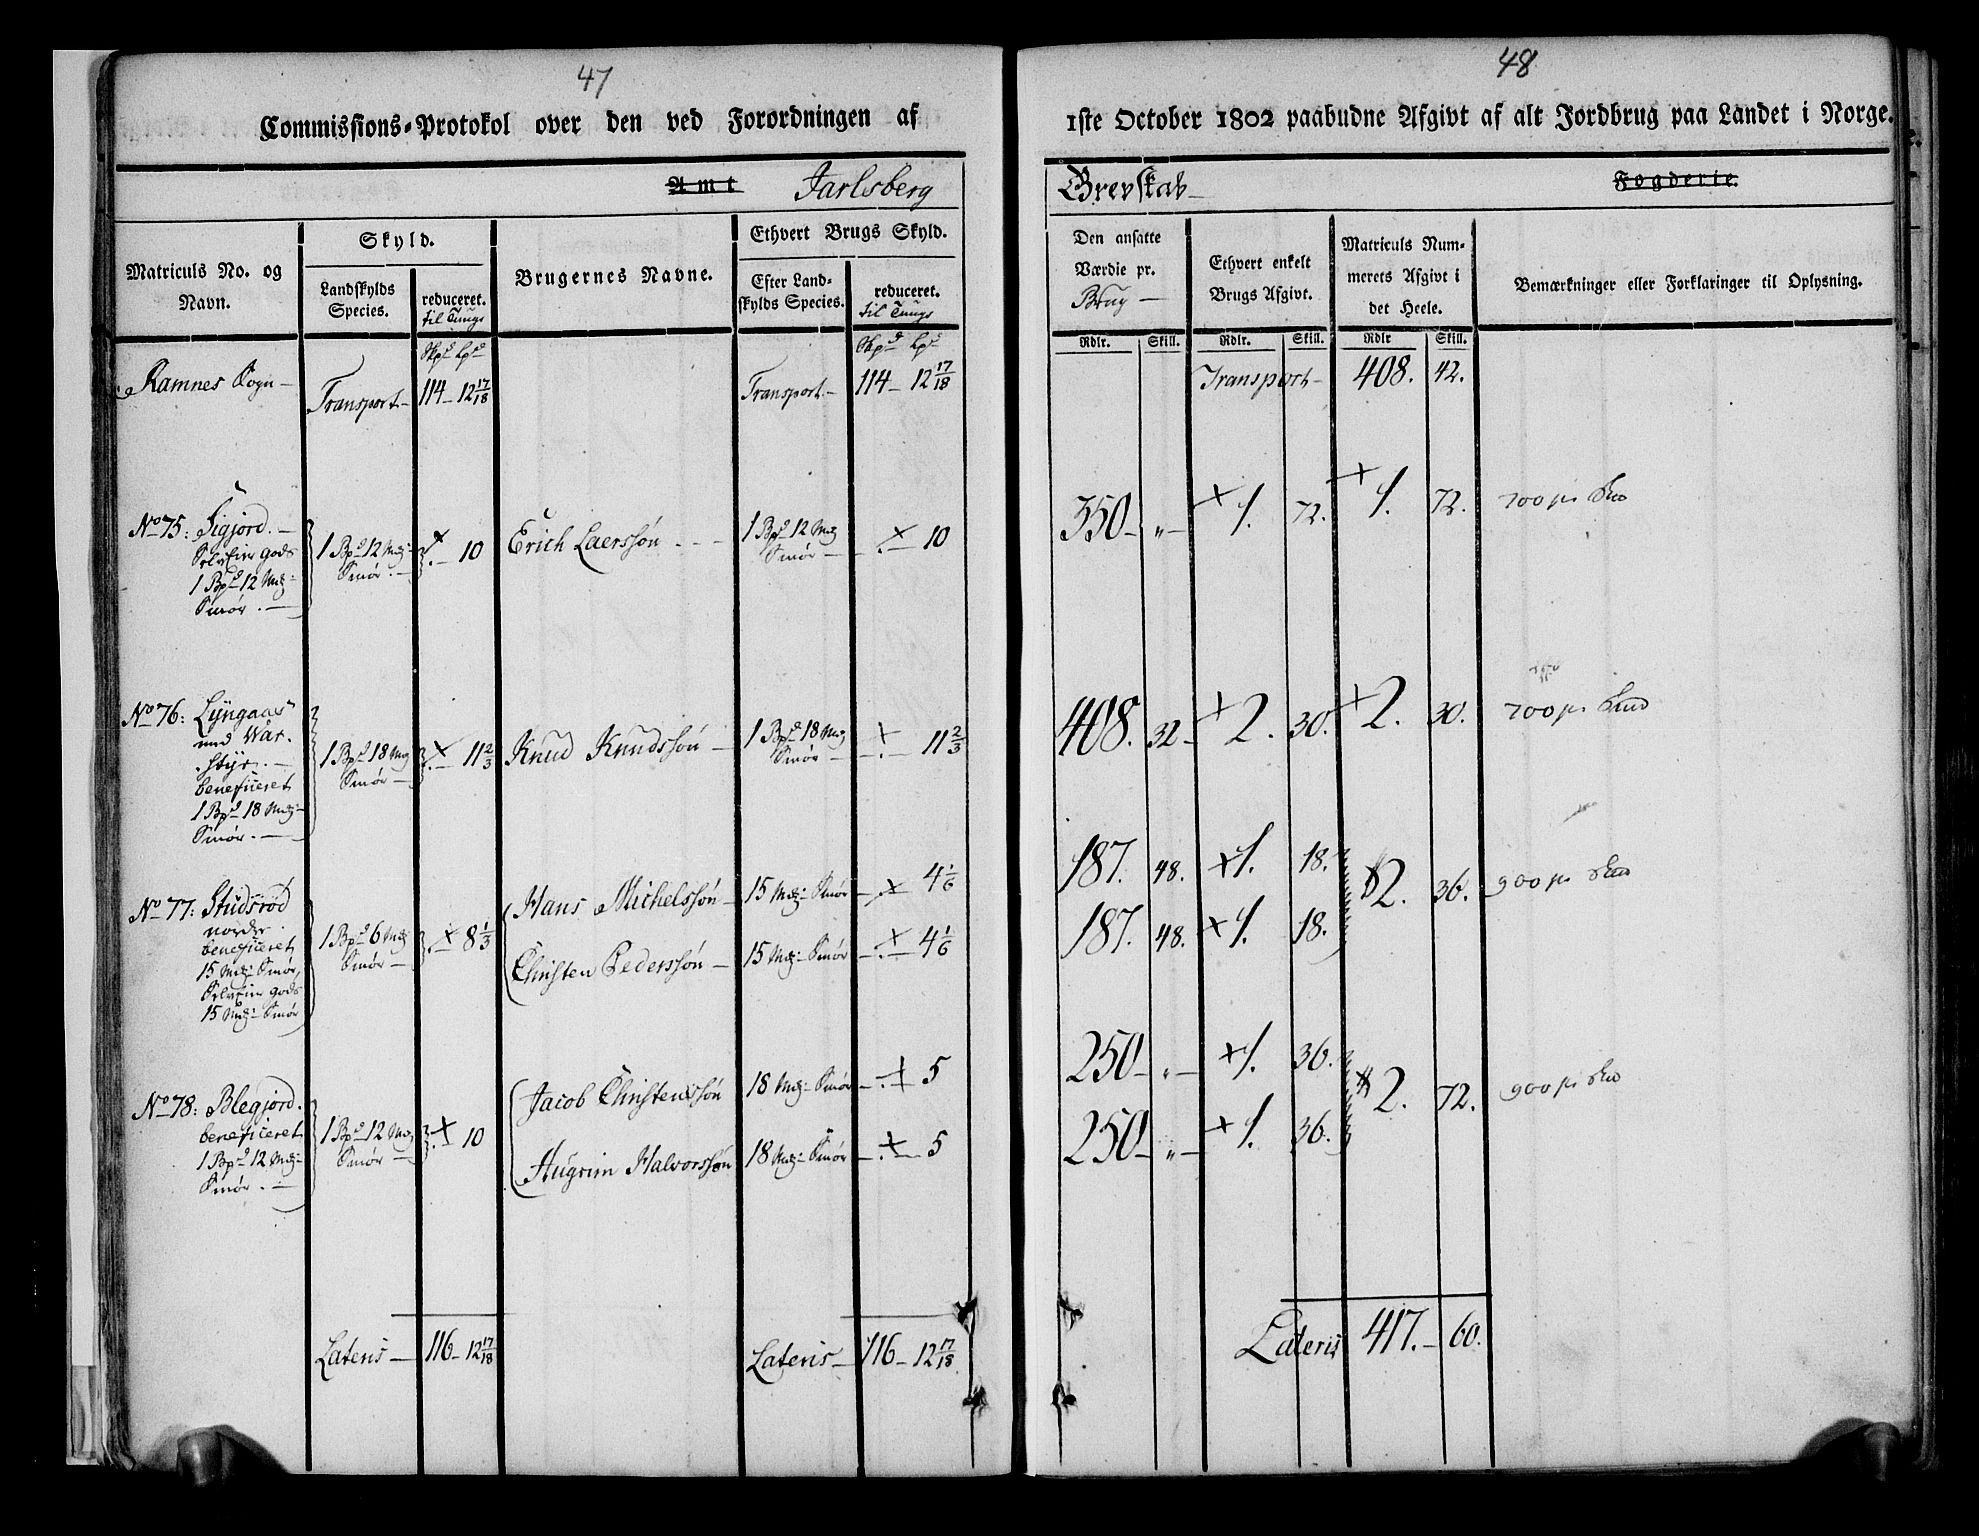 47
Commissions-Protokol over den ved Forordningen af
Amt Jarlsberg
Matriculs No. og Navn.
Skyld.
Landskylds Species.
reduceret. til Tunge
Brugernes Navne.
Ethvert Brugs Skyld.
Efter Landskylds Species.
reduceret. til Tunge
Ramnes Sogn —
Transport —
Skpd Lpd
114 — 12 17/18
Transport —
Skpd Lpd
114 — 12 17/18
No 75: Sigjord. —
Selveier gods
1 Bpd 12 Mk:
Smør. —
1 Bpd 12 Mk:
Smør. —
10
Erich Laerssøn
1 Bpd 12 Mk
Smør —
10
No 76: Lyngaas
med War-
styr. —
beneficeret
1 Bpd 18 Mk:
Smør. —
1 Bpd 18 Mk
Smør —
11 2/3
Knud Knudssøn —
1 Bpd 18 Mk
Smør —
11 2/3
No 77: Studsrød
nordre.
beneficeret
15 Mk: Smør,
Selveier gods
15 Mk: Smør
1 Bpd 6 Mk
Smør —
8 1/3
Hans Michelssøn —
15 Mk: Smør —
4 1/6
Christen Pederssøn —
15 Mk: Smør —
4 1/6
No 78: Blegjord.
beneficeret
1 Bpd 12 Mk:
Smør. —
1 Bpd 12 Mk
Smør —
10
Jacob Christenssøn
18 Mk: Smør —
5
Augrim Halvorssøn
18 Mk: Smør —
5
Lateris —
116 — 12 17/18
Lateris —
116 — 12 17/18
48
1ste October 1802 paabudne Afgivt af alt Jordbrug paa Landet i Norge.
Grevskab — Fogderie.
Den ansatte Værdie pr. Brug —
Ethvert enkelt Brugs Afgivt.
Matriculs Nummerets Afgivt i det Heele.
Bemærkninger eller Forklaringer til Oplysning.
Rdlr. Skill. Rdlr. Skill. Rdlr Skill.
Transport — 408. 42.
350 — „ — 1. 72. 1. 72. 700
408. 32 — 2. 30. 2. 30. 700
187. 48. 1. 18.
2. 36. 900
187. 48. 1. 18.
250 — „ — 1. 36.
2. 72. 900
250 — „ — 1. 36.
Lateris 417. — 60.